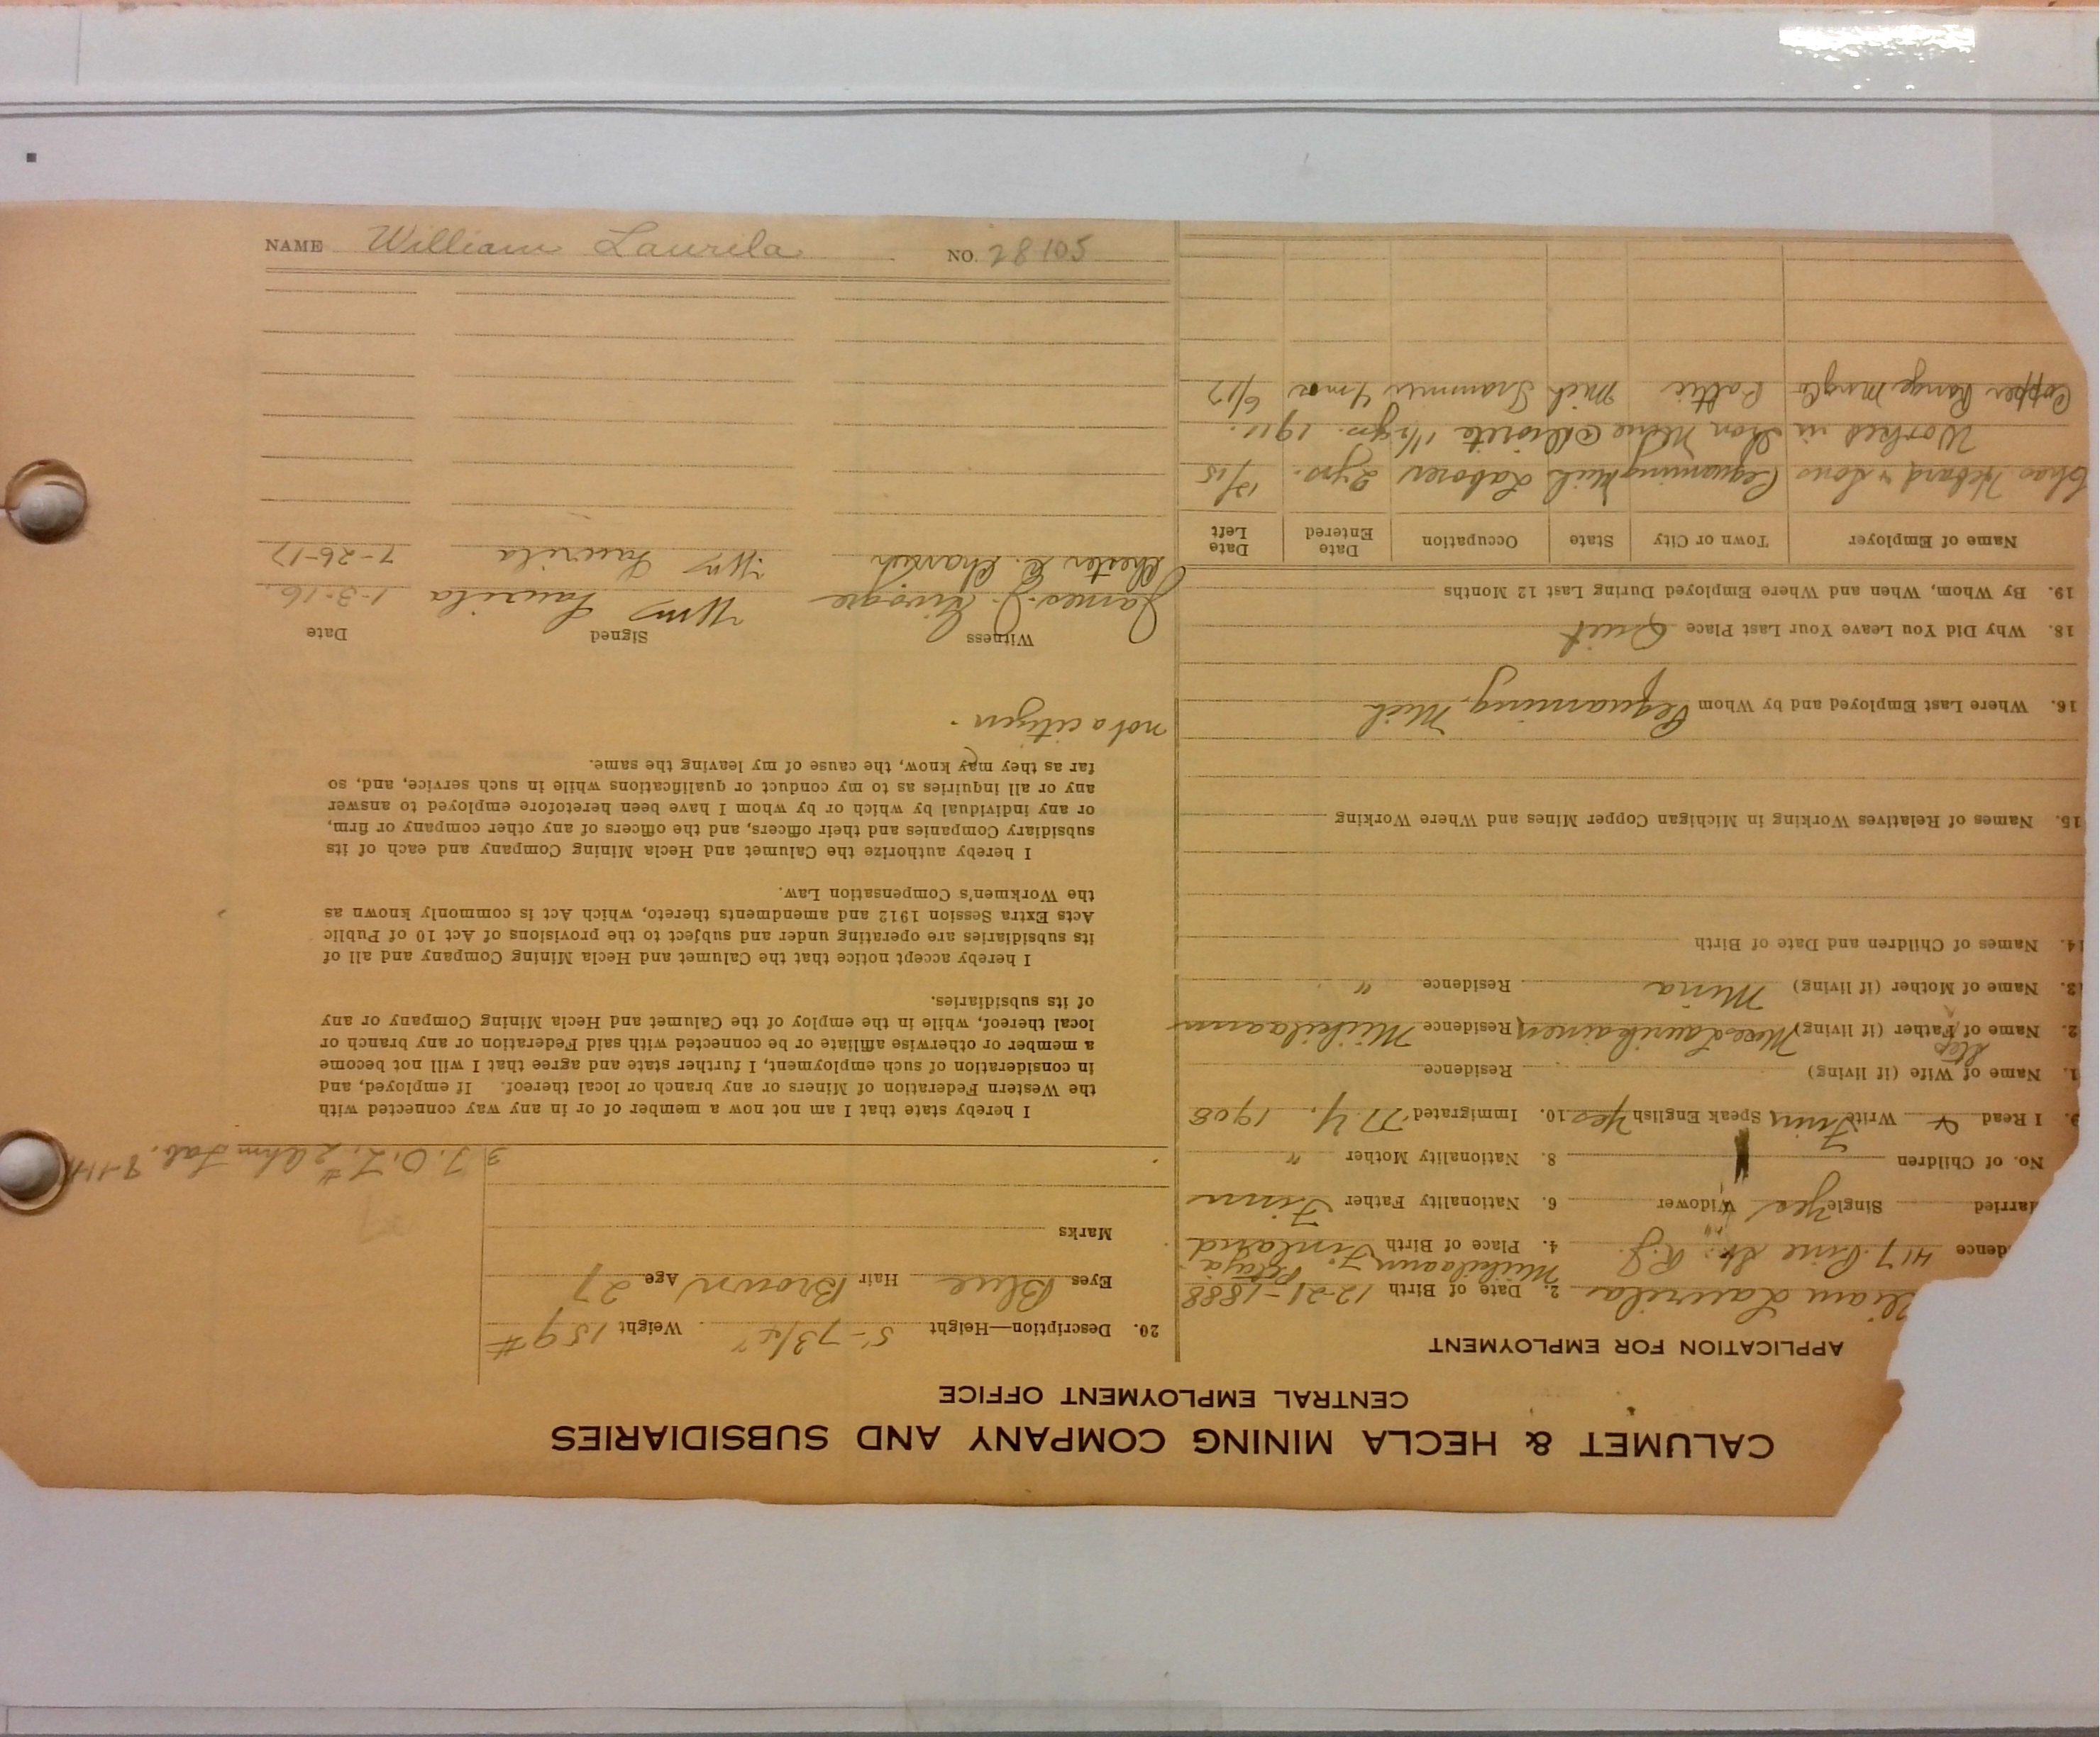 CALUMET & HECLA MINING COMPANY AND SUBSIDIARIES
CENTRAL EMPLOYMENT OFFICE
APPLICATION FOR EMPLOYMENT
liam Laurila 2. Date of Birth 12-21-1888
Miekilaann
dence 417 Pine St. R.J. 4. Place of Birth Finland
arried Single yes Widower 6. Nationality Father Finn
No. of Children 8. Nationality Mother "
9. I Read & Write Finn Speak English yes 10. Immigrated N.Y. 1908
1. Name of Wife (if living) Residence
Step
2. Name of Father (if living) Residence
3. Name of Mother (if living) Mina Residence "
14. Names of Children and Date of Birth
15. Names of Relatives Working in Michigan Copper Mines and Where Working
16. Where Last Employed and by Whom Pequaming, Mich
18. Why Did You Leave Your Last Place Quit
19. By Whom, When and Where Employed During Last 12 Months
Name of Employer Town or City State Occupation Date Entered Date Left
Chas Hebard & Sons Pequaming Mich Laborer 2 yrs. 12/15
Worked in Iron Mine @ 1 1/2 yrs. 1911.
Copper Range Mng Co Baltic Mich Trammer 4 mos 6/17
20. Description—Height 5-7 3/4" Weight 159#
Eyes Blue Hair Brown Age 27
Marks
I hereby state that I am not now a member of or in any way connected with
the Western Federation of Miners or any branch or local thereof. If employed, and
in consideration of such employment, I further state and agree that I will not become
a member or otherwise affiliate or be connected with said Federation or any branch or
local thereof, while in the employ of the Calumet and Hecla Mining Company or any
of its subsidiaries.
I hereby accept notice that the Calumet and Hecla Mining Company and all of
its subsidiaries are operating under and subject to the provisions of Act 10 of Public
Acts Extra Session 1912 and amendments thereto, which Act is commonly known as
the Workmen's Compensation Law.
I hereby authorize the Calumet and Hecla Mining Company and each of its
subsidiary Companies and their officers, and the officers of any other company or firm,
or any individual by which or by whom I have been heretofore employed to answer
any or all inquiries as to my conduct or qualifications while in such service, and, so
far as they may know, the cause of my leaving the same.
not a citizen.
Witness Signed Date
James J. Wm Laurila 1-3-16.
Chester E. Wm Laurila 7-26-17
NAME William Laurila NO. 28105